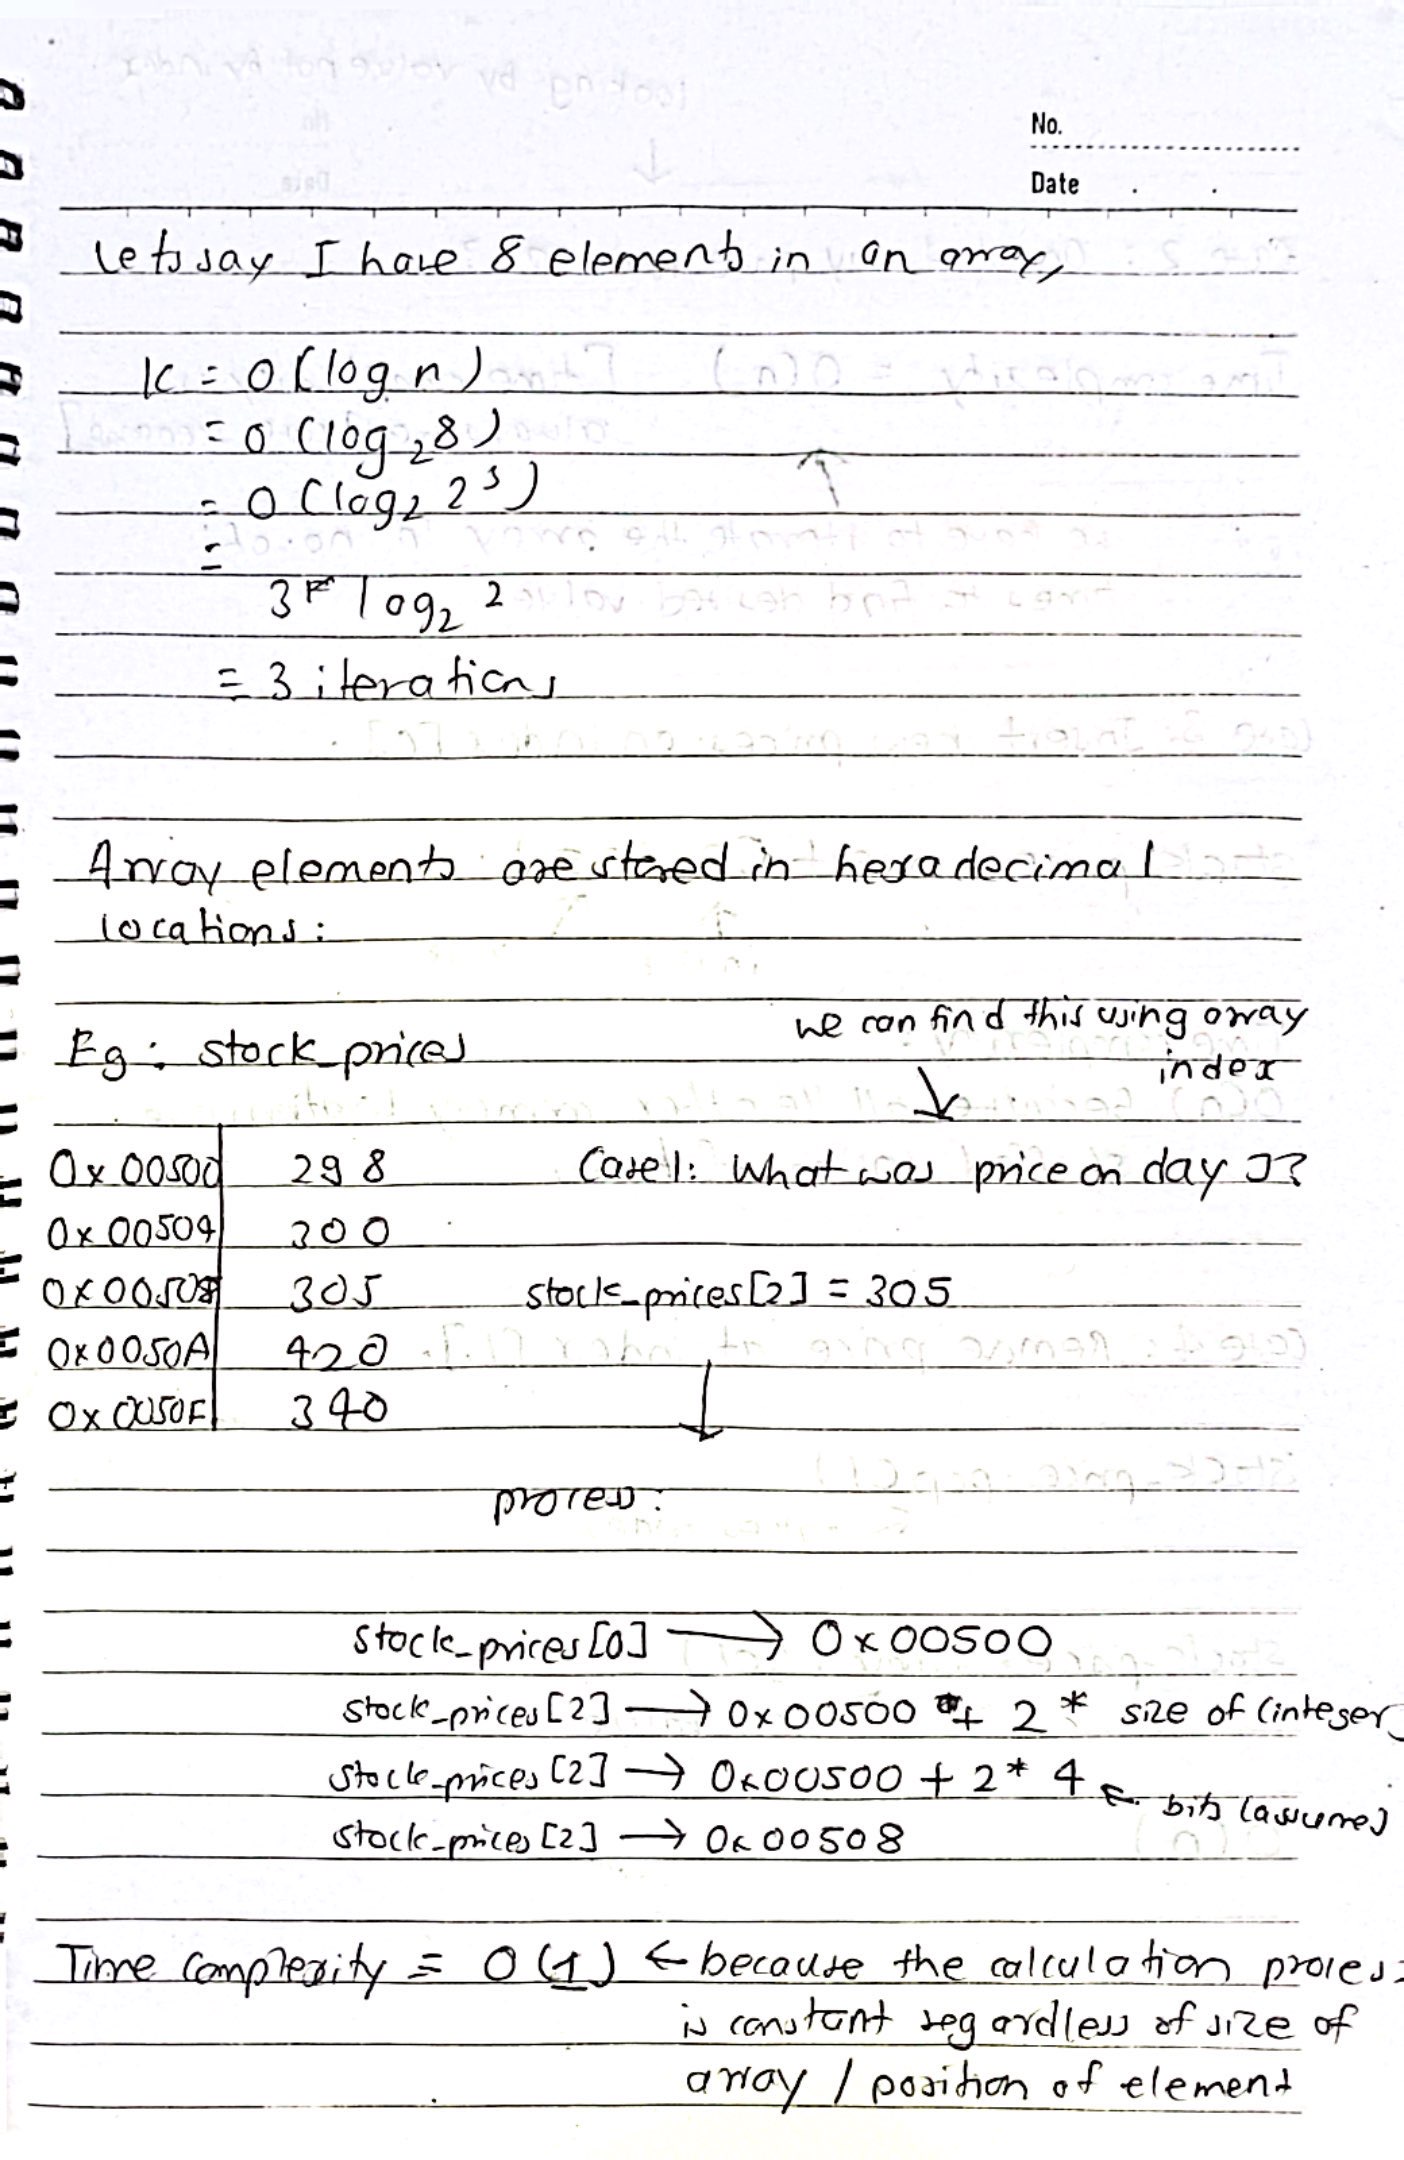 No.
Date
Lets say I have 8 elements in an array,
K = O(log n)
= O(log₂8)
= O(log₂ 2³)
=
3 * log₂ 2
= 3 iterations
Array elements are stored in hexadecimal
locations:
we can find this using array
index
Eg: stock_prices
0x00500 298 Case1: What was price on day 3?
0x00504 300
0x00508 305 stock_prices[2] = 305
0x0050A 420
0x0050F 340
process:
stock_prices[0] → 0x00500
stock_prices[2] → 0x00500 + 2 * size of (integer)
stock_prices[2] → 0x00500 + 2 * 4 ← bits (assumes)
stock_prices[2] → 0x00508
Time Complexity = O(1) ← because the calculation process
is constant regardless of size of
array / position of element